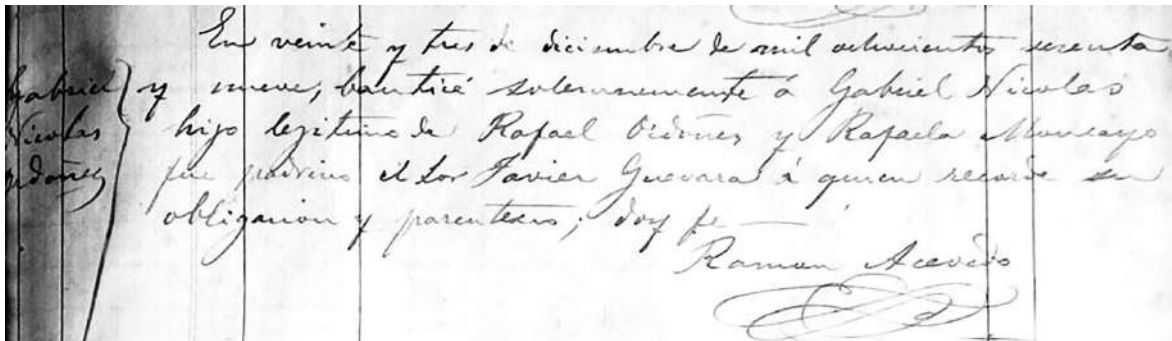 En veinte y tres de diciembre de mil ochocientos sesenta
y nueve, bauticé solemnemente á Gabriel Nicolas
hijo legitimo de Rafael Ordoñes y Rafaela Moncayo
fue padrino el Sor Javier Guevara á quien recorde su
obligacion y parentesco; doy fe
Ramon Acevedo
Gabriel
Nicolas
Ordoñez